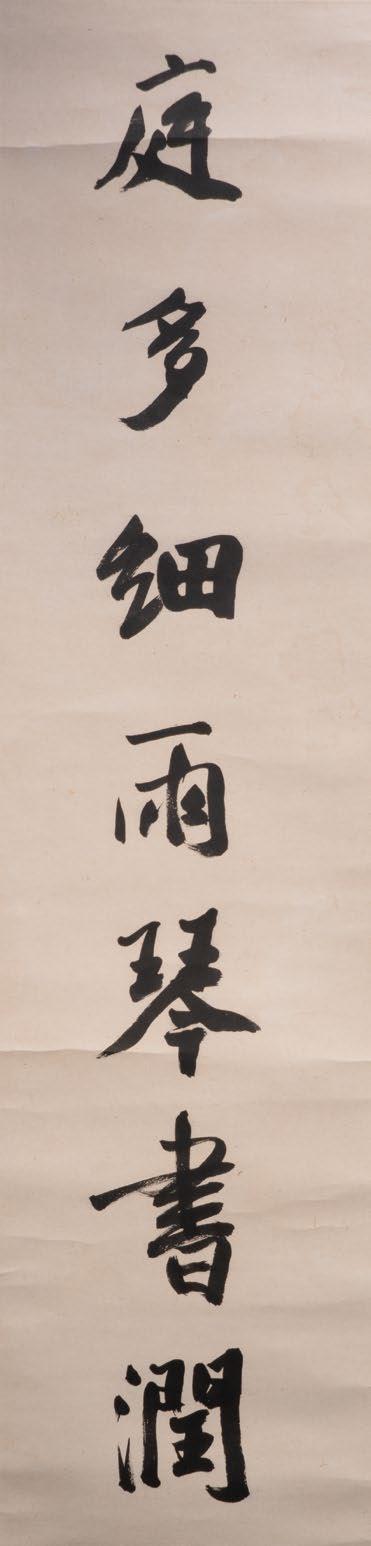 庭多細雨琴書潤